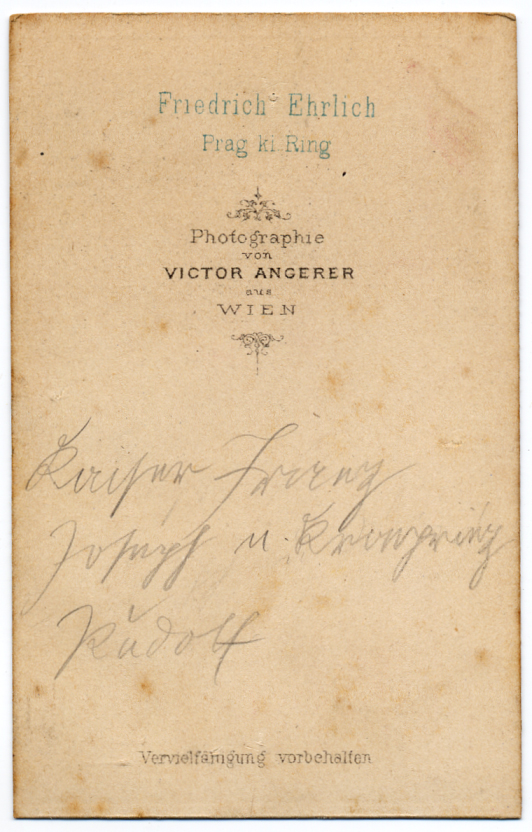 Friedrich Ehrlich
Prag kl Ring
Photographie
von
VICTOR ANGERER
aus
WIEN
Kaiser Franz
Joseph u. Kronprinz
Rudolf
Vervielfältigung vorbehalten